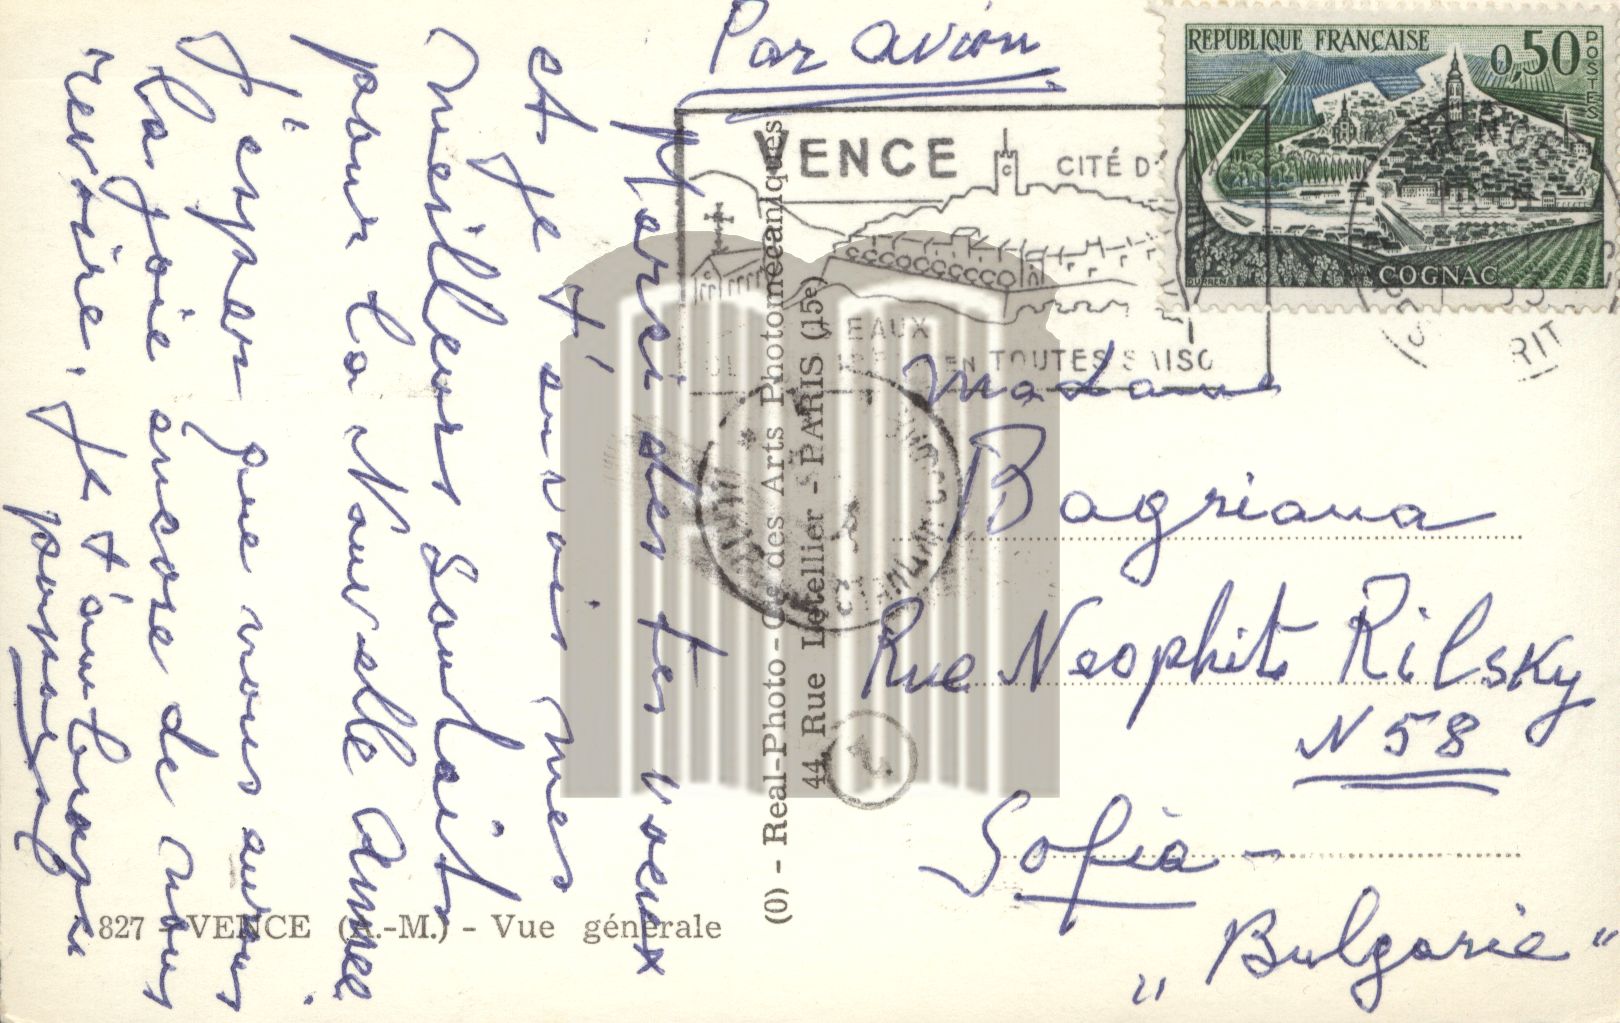 Par avion
REPUBLIQUE FRANÇAISE
0,50
POSTES
COGNAC
VENCE
CITÉ D'
EN TOUTES SAISO
Merci des tes voeux
et je t'envoi mes
meilleurs souhaits
pour la Nouvelle Année
J'esper que nous aurons
la joie encore de nous
revoire. Je t'embrasse
(0) - Real-Photo - Cie des Arts Photomécaniques
44, Rue Letellier - PARIS (15e)
827 - VENCE (A.-M.) - Vue générale
Madame
Bagriana
Rue Neophite Rilsky
N 58
Sofia -
„Bulgarie“